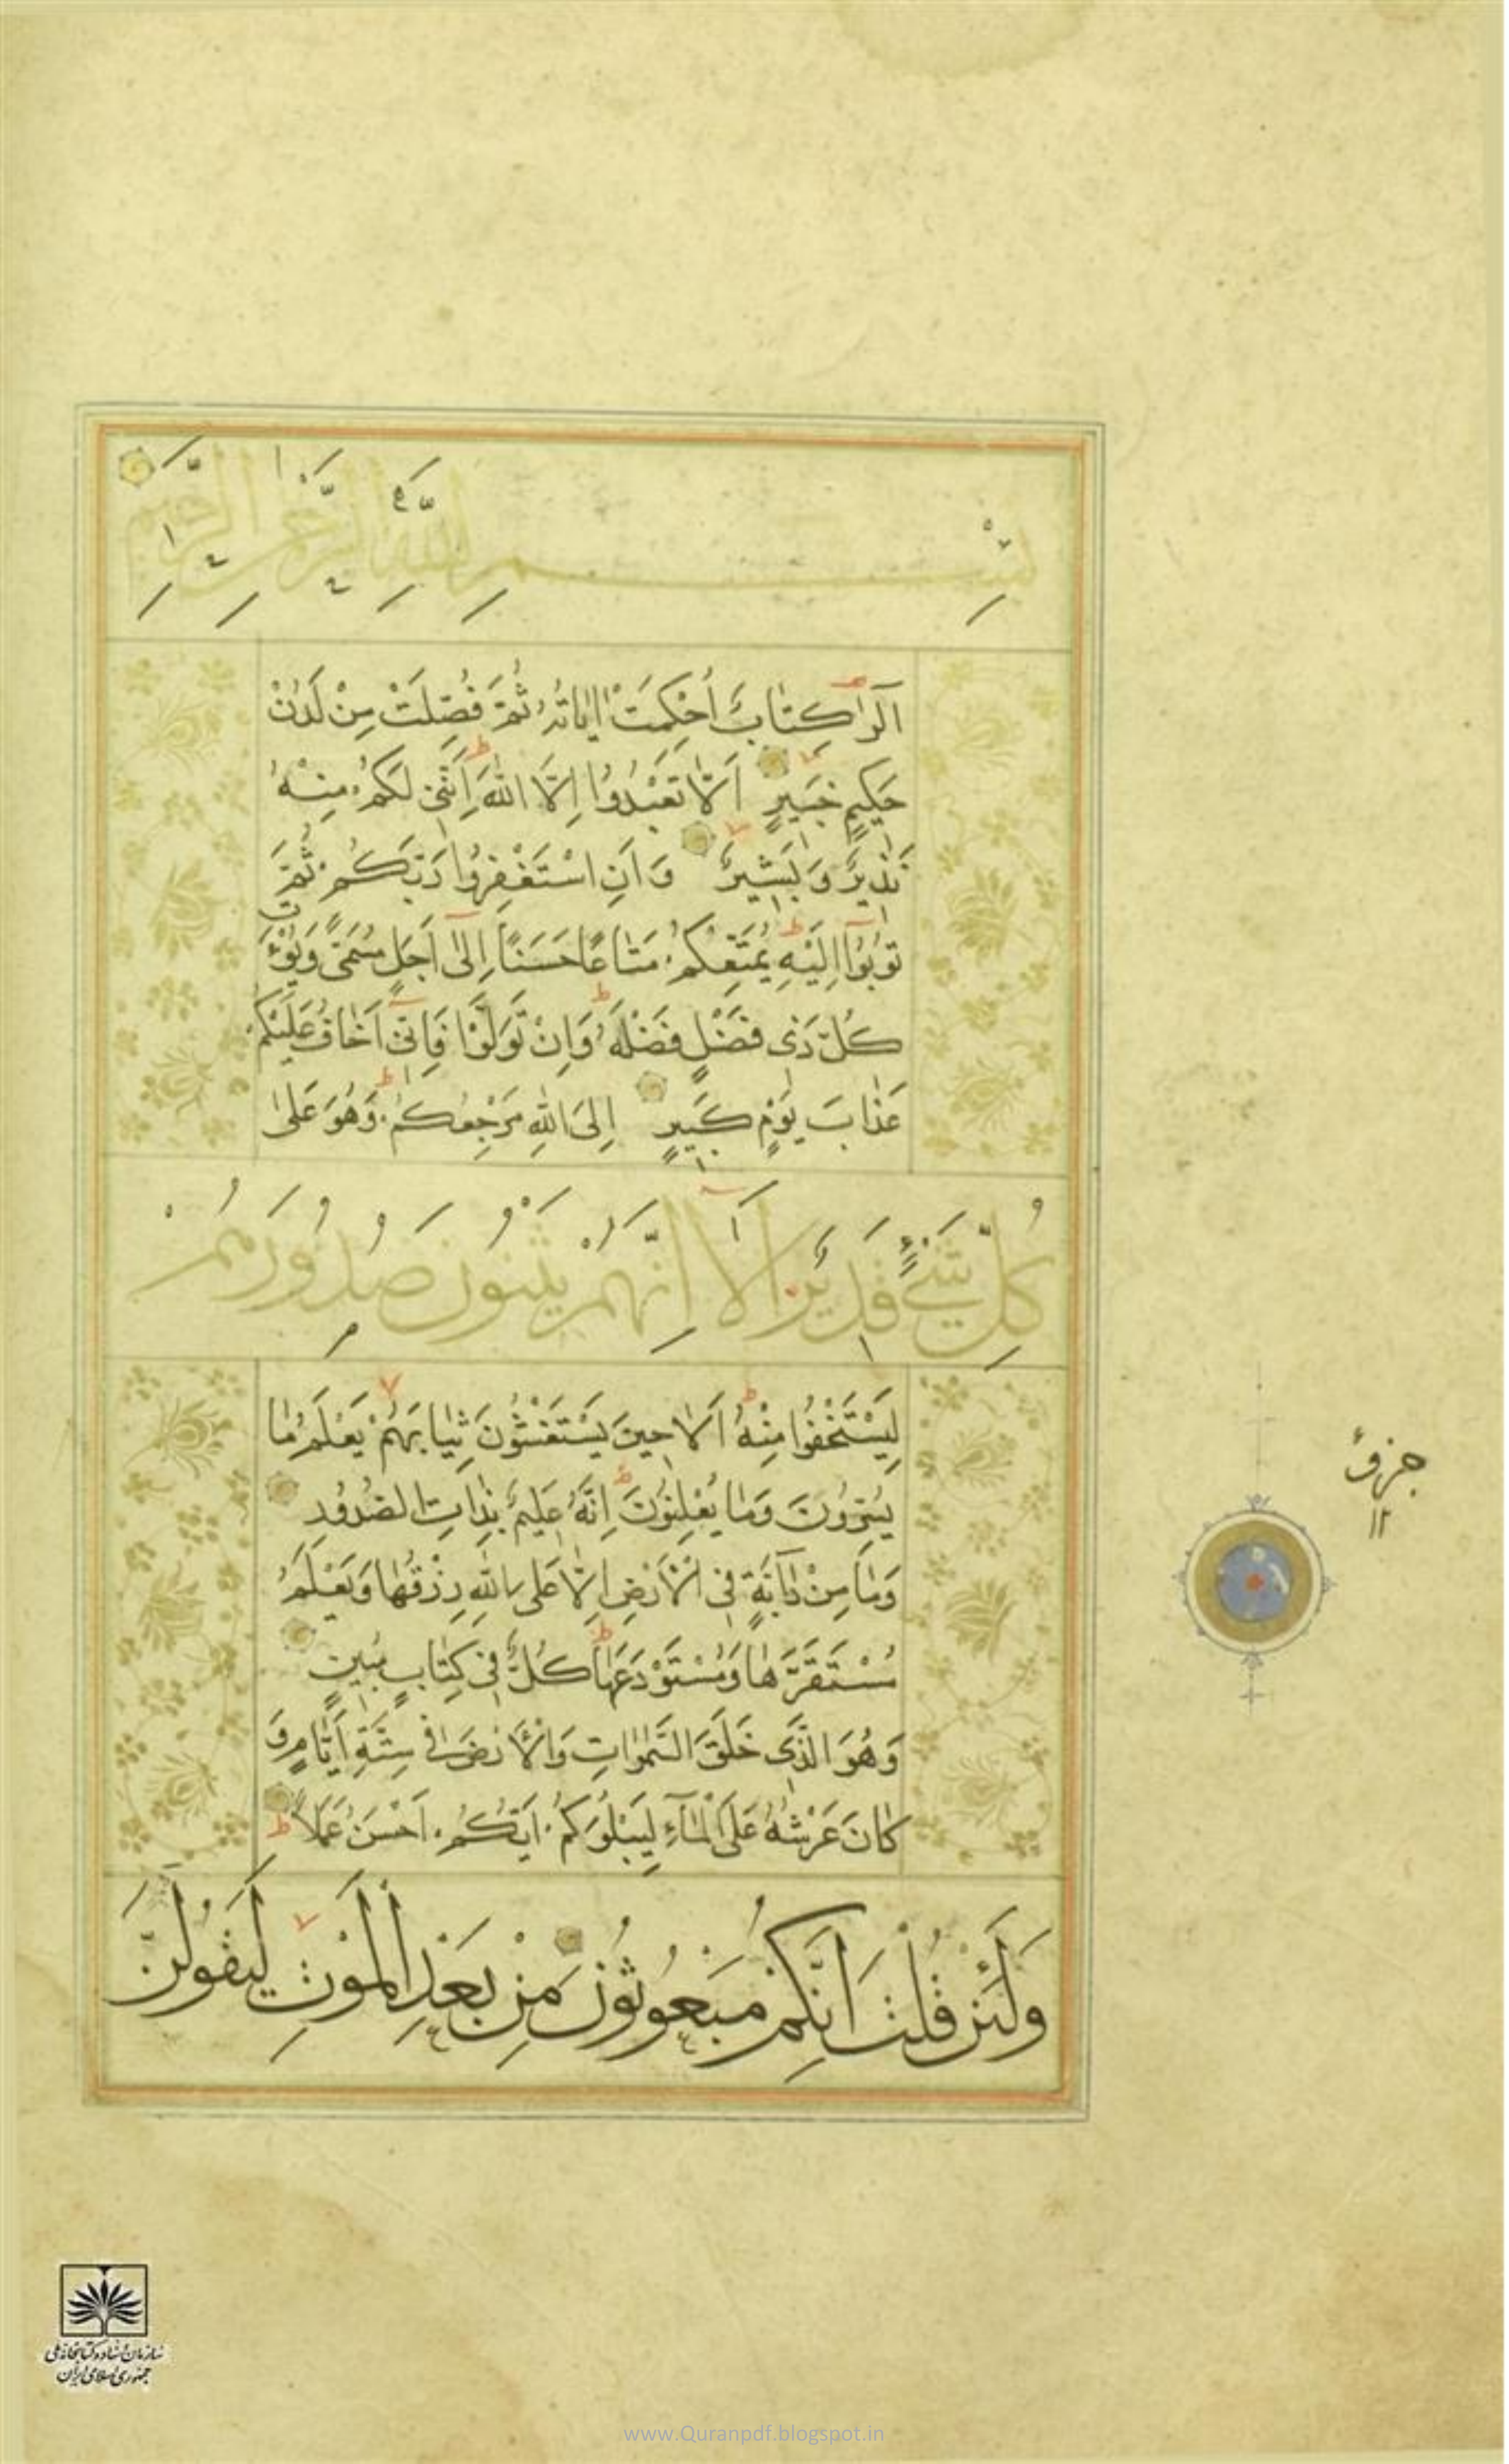 بِسْمِ اللّٰهِ الرَّحْمٰنِ الرَّحِيمِ
الٓرٰ كِتَابٌ اُحْكِمَتْ اٰيَاتُهُ ثُمَّ فُصِّلَتْ مِنْ لَدُنْ
حَكِيمٍ خَبِيرٍ اَلَّا تَعْبُدُوا اِلَّا اللّٰهَ اِنَّنِي لَكُمْ مِنْهُ
نَذِيرٌ وَبَشِيرٌ وَاَنِ اسْتَغْفِرُوا رَبَّكُمْ ثُمَّ
تُوبُوٓا اِلَيْهِ يُمَتِّعْكُمْ مَتَاعًا حَسَنًا اِلٰٓى اَجَلٍ مُسَمًّى وَيُؤْتِ
كُلَّ ذِي فَضْلٍ فَضْلَهُ وَاِنْ تَوَلَّوْا فَاِنِّيٓ اَخَافُ عَلَيْكُمْ
عَذَابَ يَوْمٍ كَبِيرٍ اِلَى اللّٰهِ مَرْجِعُكُمْ وَهُوَ عَلٰى
كُلِّ شَيْءٍ قَدِيرٌ اَلَآ اِنَّهُمْ يَثْنُونَ صُدُورَهُمْ
لِيَسْتَخْفُوا مِنْهُ اَلَا حِينَ يَسْتَغْشُونَ ثِيَابَهُمْ يَعْلَمُ مَا
يُسِرُّونَ وَمَا يُعْلِنُونَ اِنَّهُ عَلِيمٌ بِذَاتِ الصُّدُورِ
وَمَا مِنْ دَآبَّةٍ فِي الْاَرْضِ اِلَّا عَلَى اللّٰهِ رِزْقُهَا وَيَعْلَمُ
مُسْتَقَرَّهَا وَمُسْتَوْدَعَهَا كُلٌّ فِي كِتَابٍ مُبِينٍ
وَهُوَ الَّذِي خَلَقَ السَّمٰوَاتِ وَالْاَرْضَ فِي سِتَّةِ اَيَّامٍ وَ
كَانَ عَرْشُهُ عَلَى الْمَآءِ لِيَبْلُوَكُمْ اَيُّكُمْ اَحْسَنُ عَمَلًا
وَلَئِنْ قُلْتَ اِنَّكُمْ مَبْعُوثُونَ مِنْ بَعْدِ الْمَوْتِ لَيَقُولَنَّ
جزؤ
١٢
سازمان اسناد و کتابخانه ملی
جمهوری اسلامی ایران
www.Quranpdf.blogspot.in